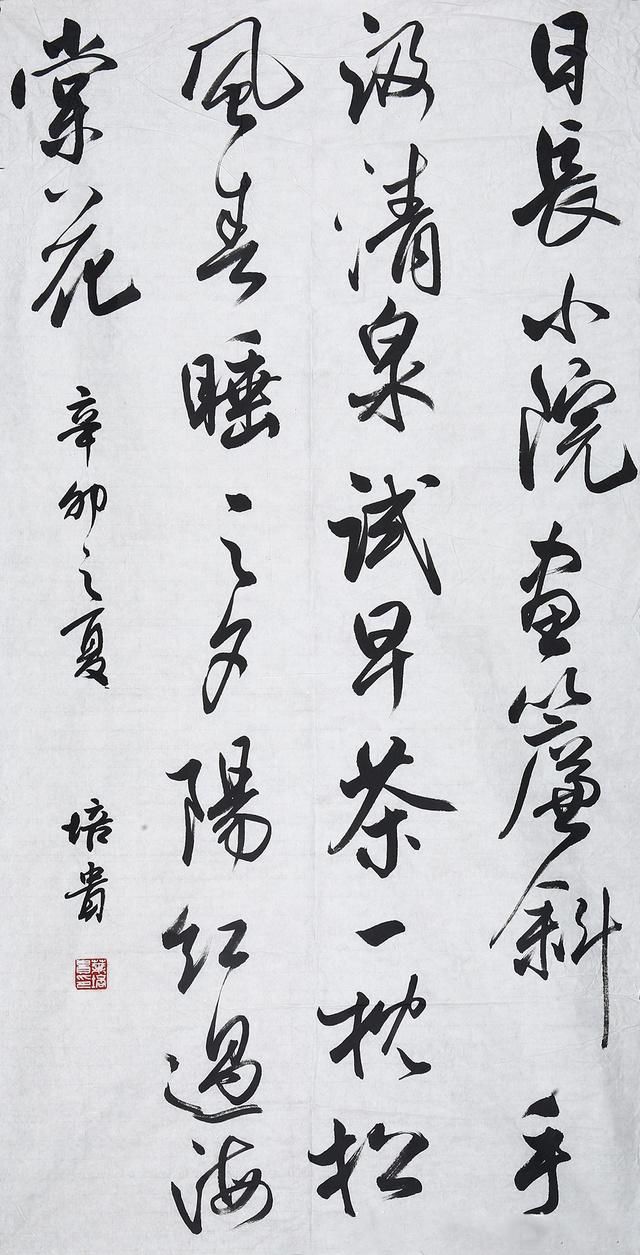 日長小院画簾斜手
汲清泉試早茶一枕松
風春睡足夕陽紅過海
棠花
辛卯之夏
培貴
葉培貴印